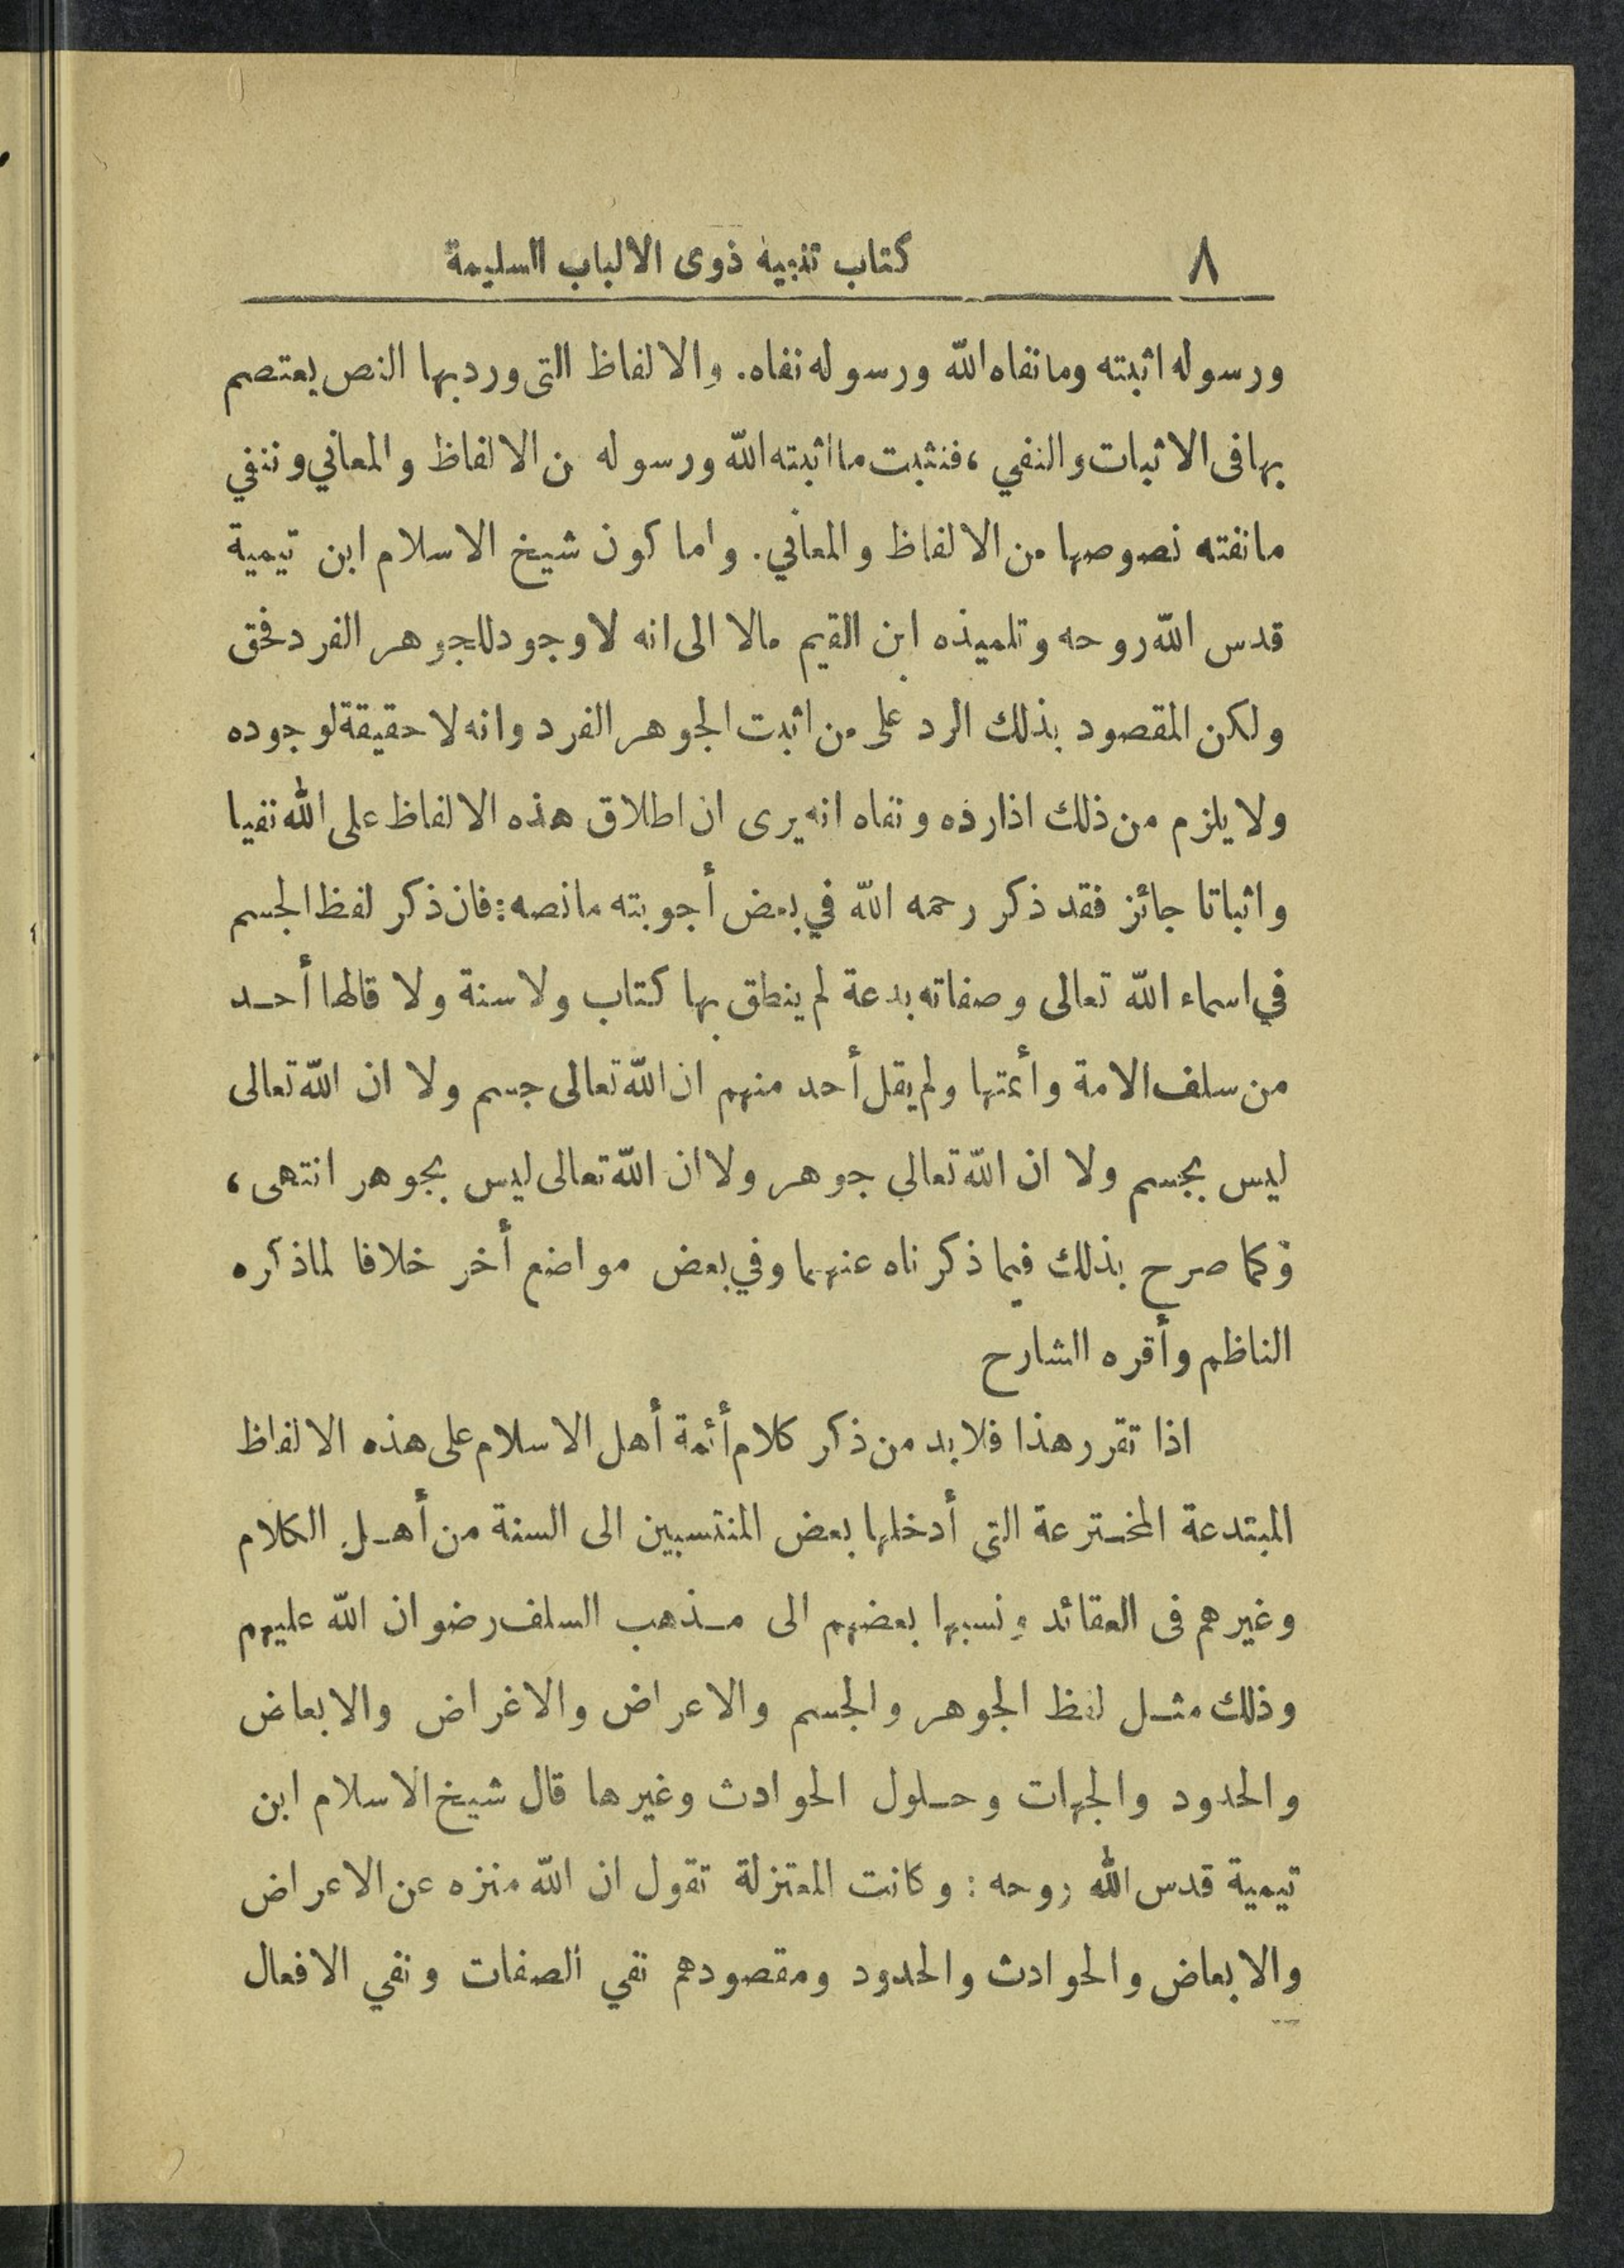 ٨ كتاب تنبيه ذوى الالباب السليمة
ورسوله اثبته وما نفاه الله ورسوله نفاه. والالفاظ التى ورد بها النص يعتصم
بها فى الاثبات والنفي، فنثبت ما اثبته الله ورسوله من الالفاظ والمعاني وننفي
ما نفته نصوصها من الالفاظ والمعاني. واما كون شيخ الاسلام ابن تيمية
قدس الله روحه وتلميذه ابن القيم مالا الى انه لا وجود للجوهر الفرد فحق
ولكن المقصود بذلك الرد على من اثبت الجوهر الفرد وانه لا حقيقة لوجوده
ولا يلزم من ذلك اذا رده ونفاه انه يرى ان اطلاق هذه الالفاظ على الله نفيا
واثباتا جائز فقد ذكر رحمه الله في بعض أجوبته ما نصه: فان ذكر لفظ الجسم
في اسماء الله تعالى وصفاته بدعة لم ينطق بها كتاب ولا سنة ولا قالها أحد
من سلف الامة وأئمتها ولم يقل أحد منهم ان الله تعالى جسم ولا ان الله تعالى
ليس بجسم ولا ان الله تعالي جوهر ولا ان الله تعالى ليس بجوهر انتهى،
وكما صرح بذلك فيما ذكرناه عنهما وفي بعض مواضع أخر خلافا لما ذكره
الناظم وأقره الشارح
اذا تقرر هذا فلا بد من ذكر كلام أئمة أهل الاسلام على هذه الالفاظ
المبتدعة المخترعة التى أدخلها بعض المنتسبين الى السنة من أهل الكلام
وغيرهم فى العقائد ونسبها بعضهم الى مذهب السلف رضوان الله عليهم
وذلك مثل لفظ الجوهر والجسم والاعراض والاغراض والابعاض
والحدود والجهات وحلول الحوادث وغيرها قال شيخ الاسلام ابن
تيمية قدس الله روحه: وكانت المعتزلة تقول ان الله منزه عن الاعراض
والابعاض والحوادث والحدود ومقصودهم نفي الصفات ونفي الافعال